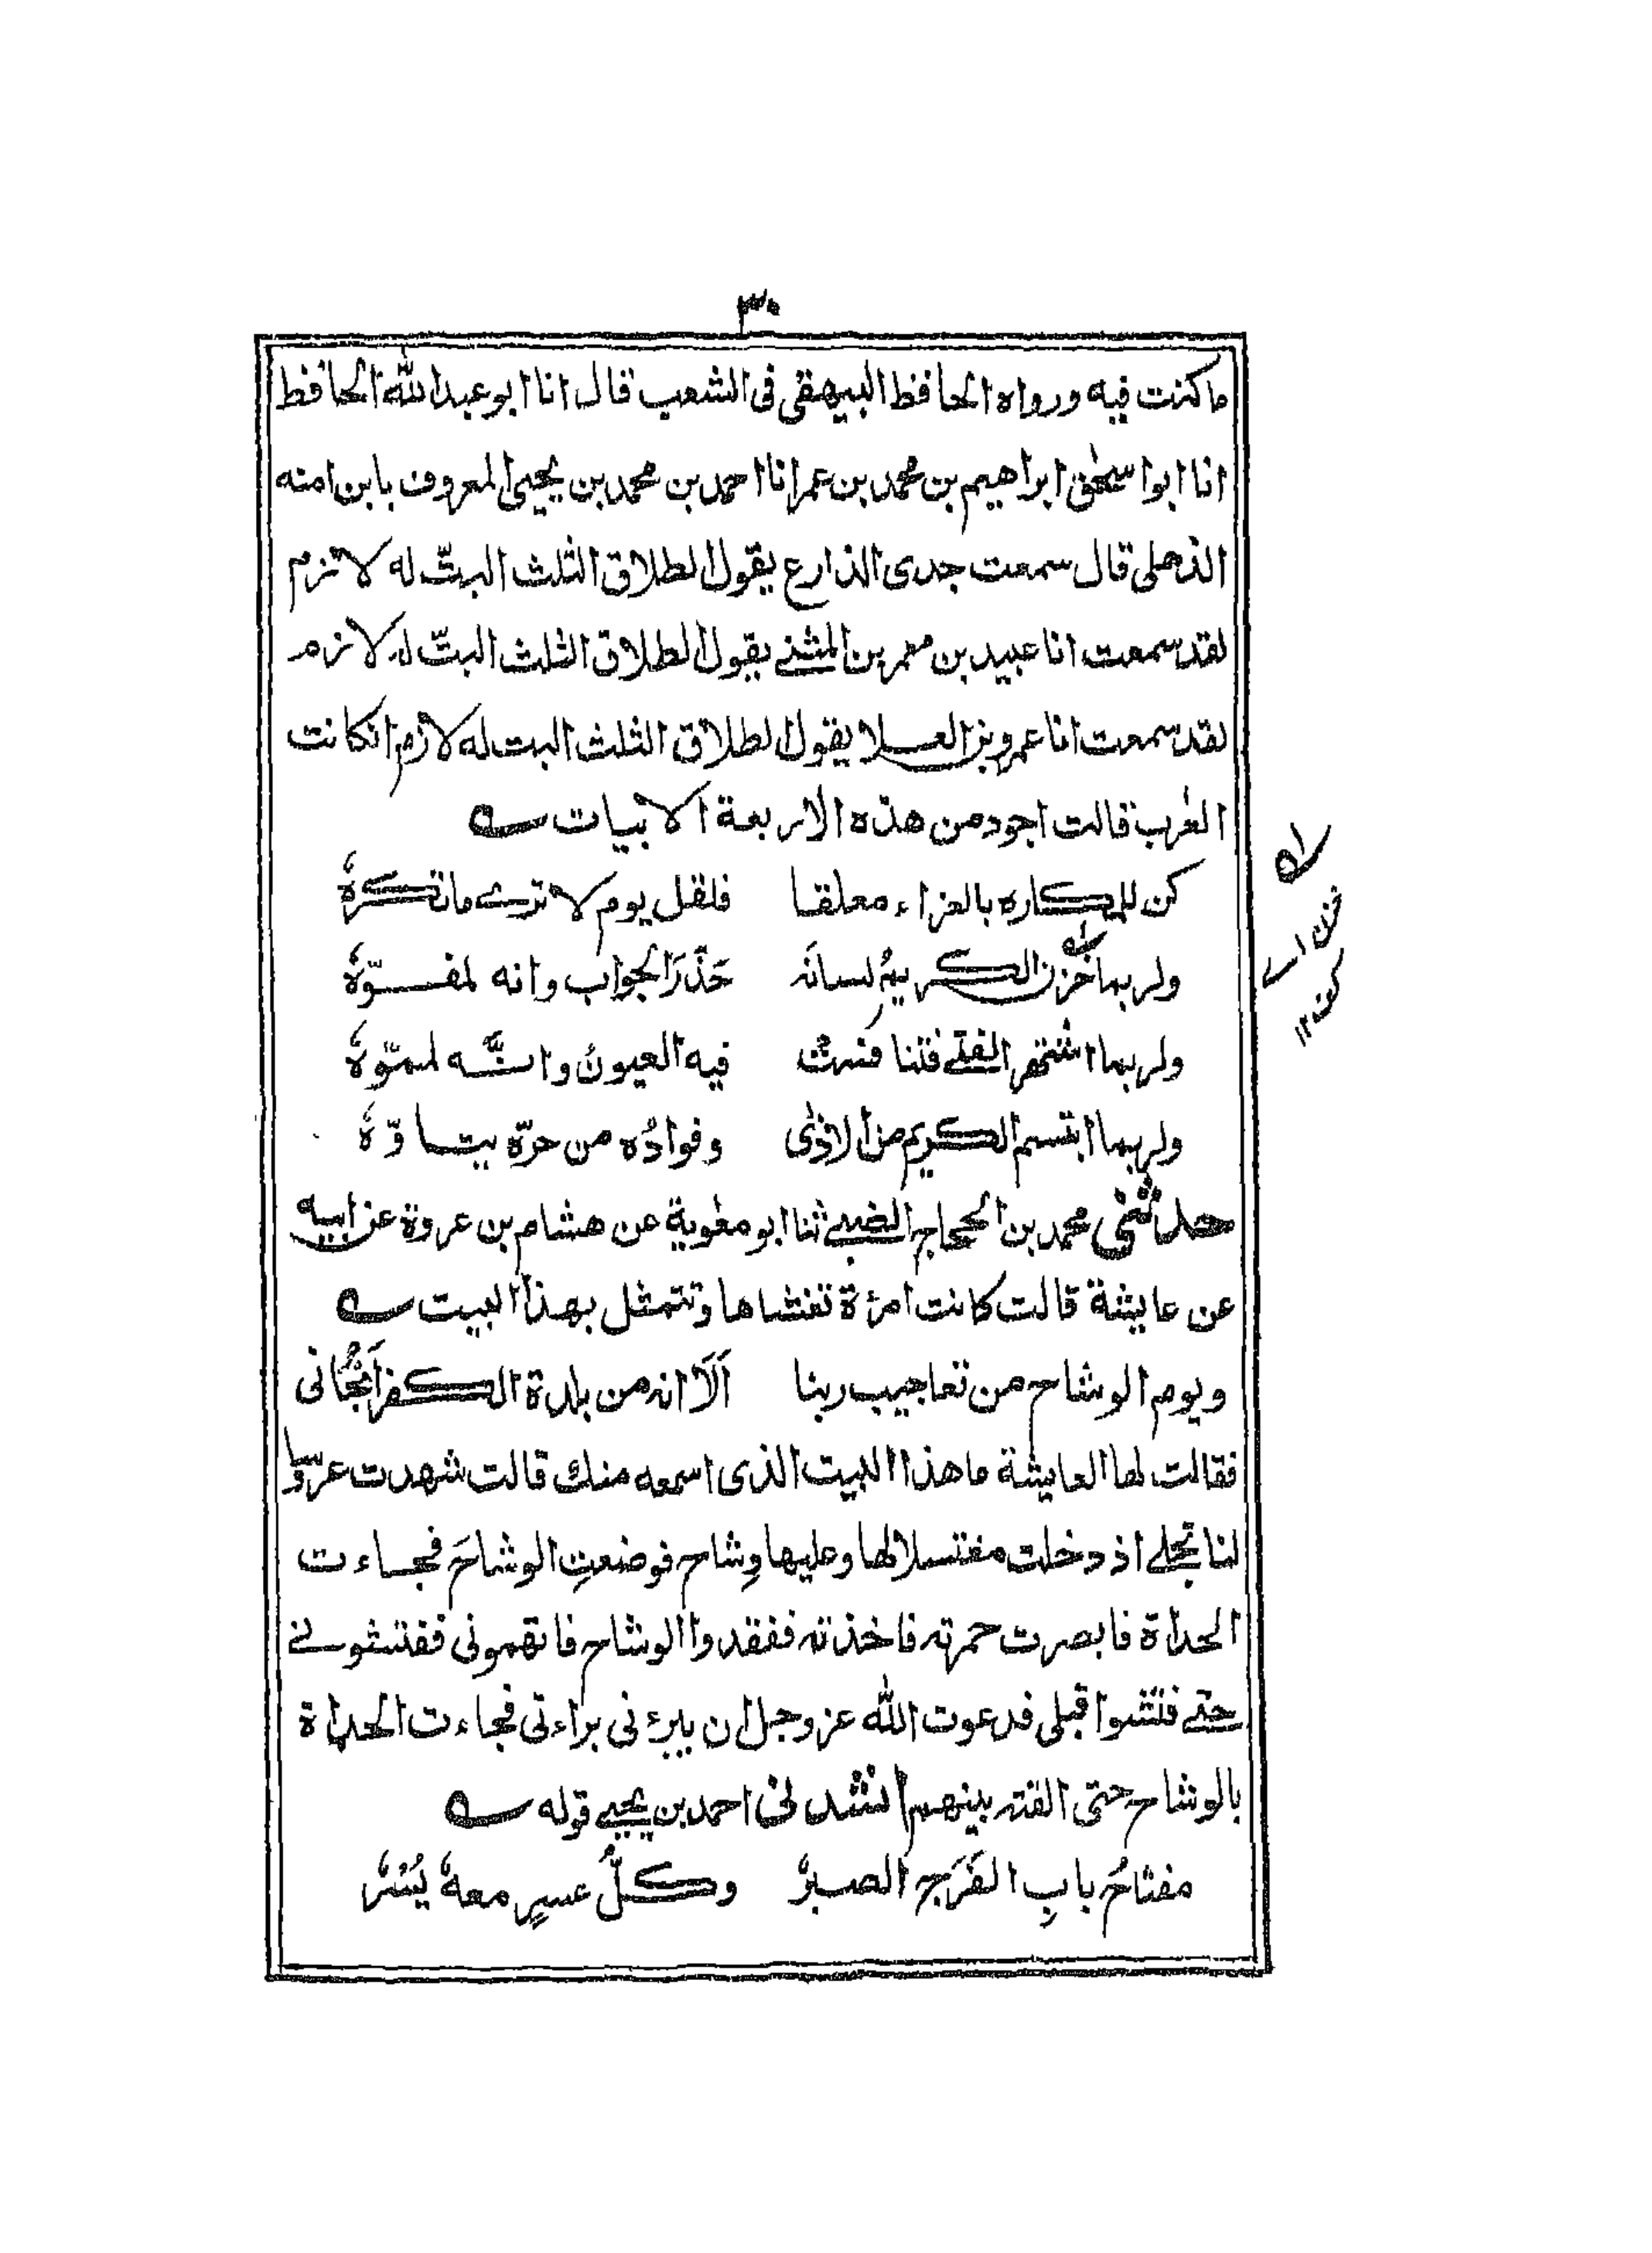 ٣٠
ما كنت فيه ورواه الحافظ البيهقى فى الشعب قال انا ابو عبد الله الحافظ
انا ابو اسحٰق ابراهيم بن محمد بن عمر انا احمد بن محمد بن يحيى المعروف بابن امنه
الذهلى قال سمعت جدى الذارع يقول الطلاق الثلث البتّ له لا تزم
لقد سمعت انا عبيد بن معمر بن المثنى يقول الطلاق الثلث البتّ له لازم
لقد سمعت انا عمرو بن العلا يقول الطلاق الثلث البت له لازم انكانت
العرب قالت اجود من هذه الاربعة الابيات ؎
كن للمكاره بالعزاء معلقا فلقل يوم لا ترى ما تكرهُ
ولربما خزن الكريمُ لسانَه حَذَرَ الجواب وانه لمفوّهُ
ولربما الفتى فتنا فيه العيونُ وانّه لمموّهُ
ولربما ابتسم الكريم من الاذى وفوادُه من حرّه يتاوّهُ
حدثنى محمد بن الحجاج الضبى ثنا ابو معٰوية عن هشام بن عروة عن ابيه
عن عايشة قالت كانت امرءة تغشاها وتتمثل بهذا البيت ؎
ويوم الوشاح من تعاجيب ربنا اَلَا انه من بلدة الكفر اَنْجَانى
فقالت لها العايشة ما هذا البيت الذى اسمعه منك قالت شهدت عروسا
لنا تجلى اذ دخلت مغتسلا لها وعليها وِشاح فوضعتِ الوشاحَ فجاءت
الحداة فابصرت حمرته فاخذته ففقدوا الوشاح فاتهمونى ففتشونى
حتى فتشوا قبلى فدعوت الله عز وجل ان يبرءنى براءتى فجاءت الحداة
بالوشاح حتى القته بينهم انشدنى احمد بن يحيى قوله ؎
مفتاحُ بابِ الفَرَجِ الصبرُ وكلُّ عسيرٍ معهُ يُسْرُ
خزن اے
كف ١٢